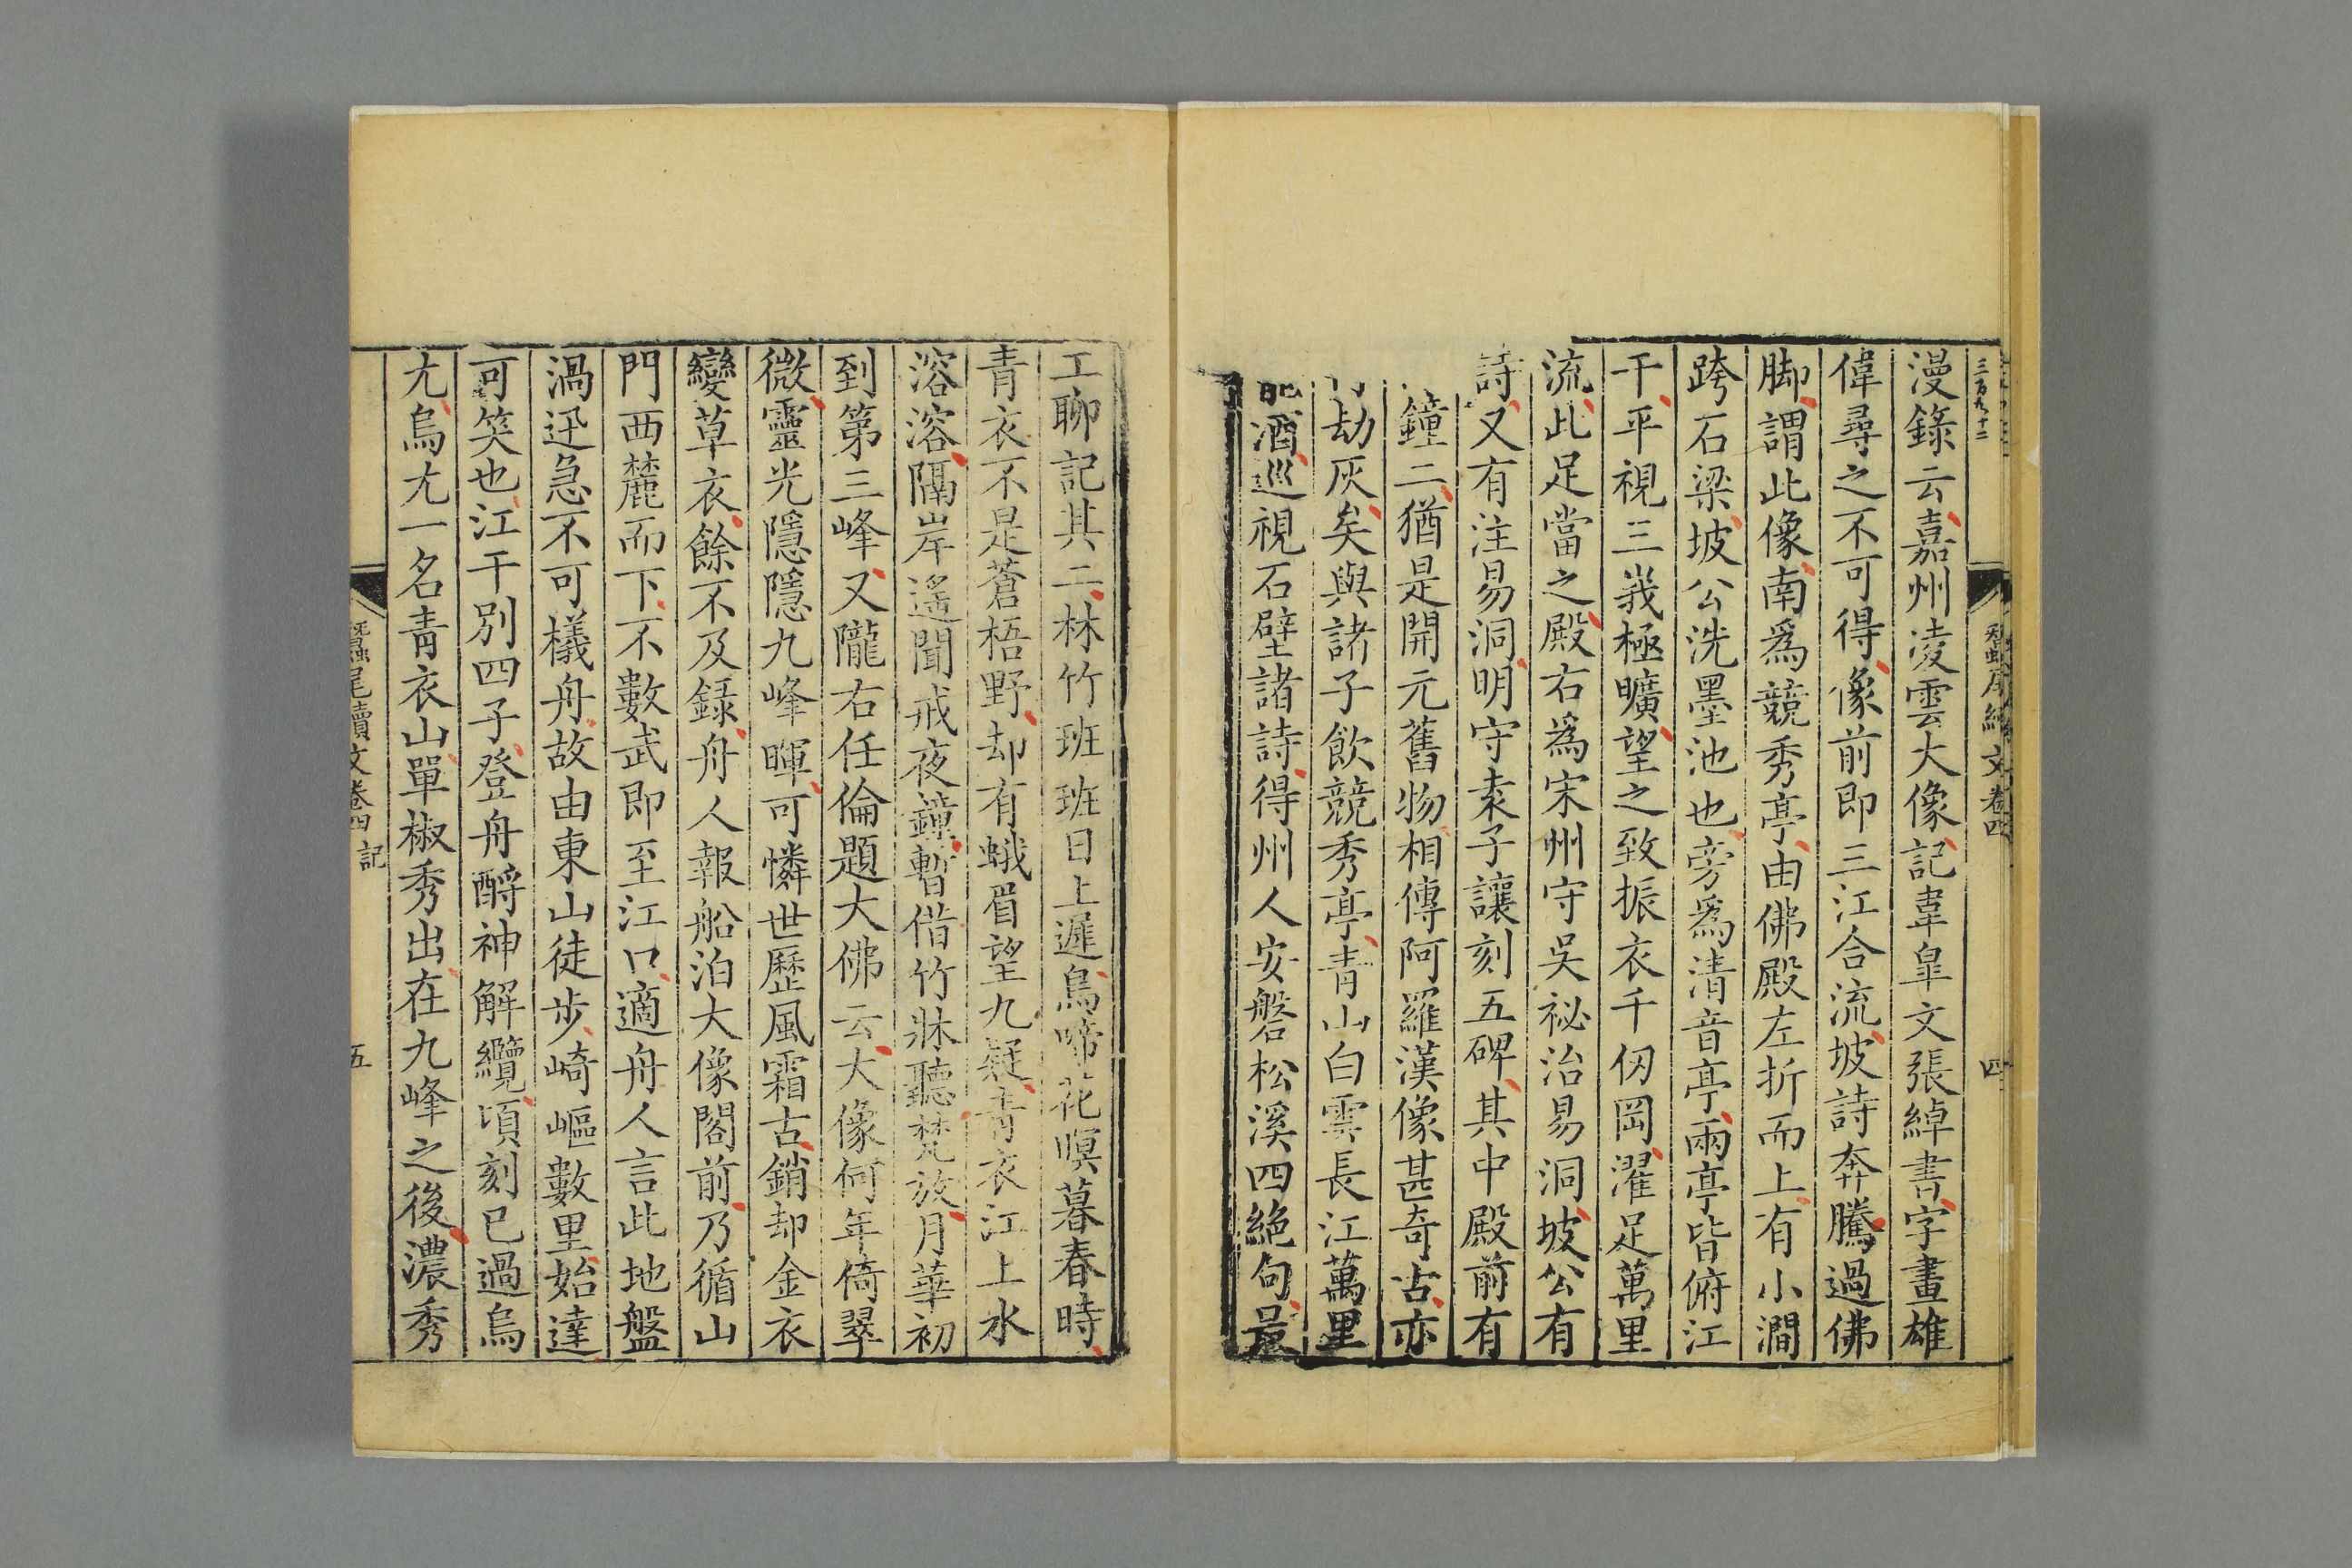 三百九十二
漫錄云嘉州凌雲大像記韋臯文張綽書字畫雄
偉尋之不可得像前即三江合流坡詩奔騰過佛
脚謂此像南爲競秀亭由佛殿左折而上有小澗
跨石梁坡公洗墨池也旁爲清音亭兩亭皆俯江
干平視三峩極曠望之致振衣千仭岡濯足萬里
流此足當之殿右爲宋州守吳祕治易洞坡公有
詩又有注易洞明守袁子讓刻五碑其中殿前有
鐘二猶是開元舊物相傳阿羅漢像甚奇古亦
劫灰矣與諸子飲競秀亭青山白雲長江萬里
酒巡視石壁諸詩得州人安磐松溪四絶句最
文卷四
四
工聊記其二林竹班班日上遲鳥啼花暝暮春時
青衣不是蒼梧野却有蛾眉望九疑青衣江上水
溶溶隔岸遙聞戒夜鐘暫借竹牀聽梵放月華初
到第三峰又隴右任倫題大佛云大像何年倚翠
微靈光隱隱九峰暉可憐世歷風霜古銷却金衣
變草衣餘不及録舟人報船泊大像閣前乃循山
門西麓而下不數武即至江口適舟人言此地盤
渦迅急不可檥舟故由東山徒步崎嶇數里始達
可笑也江干別四子登舟酹神解纜頃刻已過烏
尤烏尤一名青衣山單椒秀出在九峰之後濃秀
蠶尾續文卷四 記
五